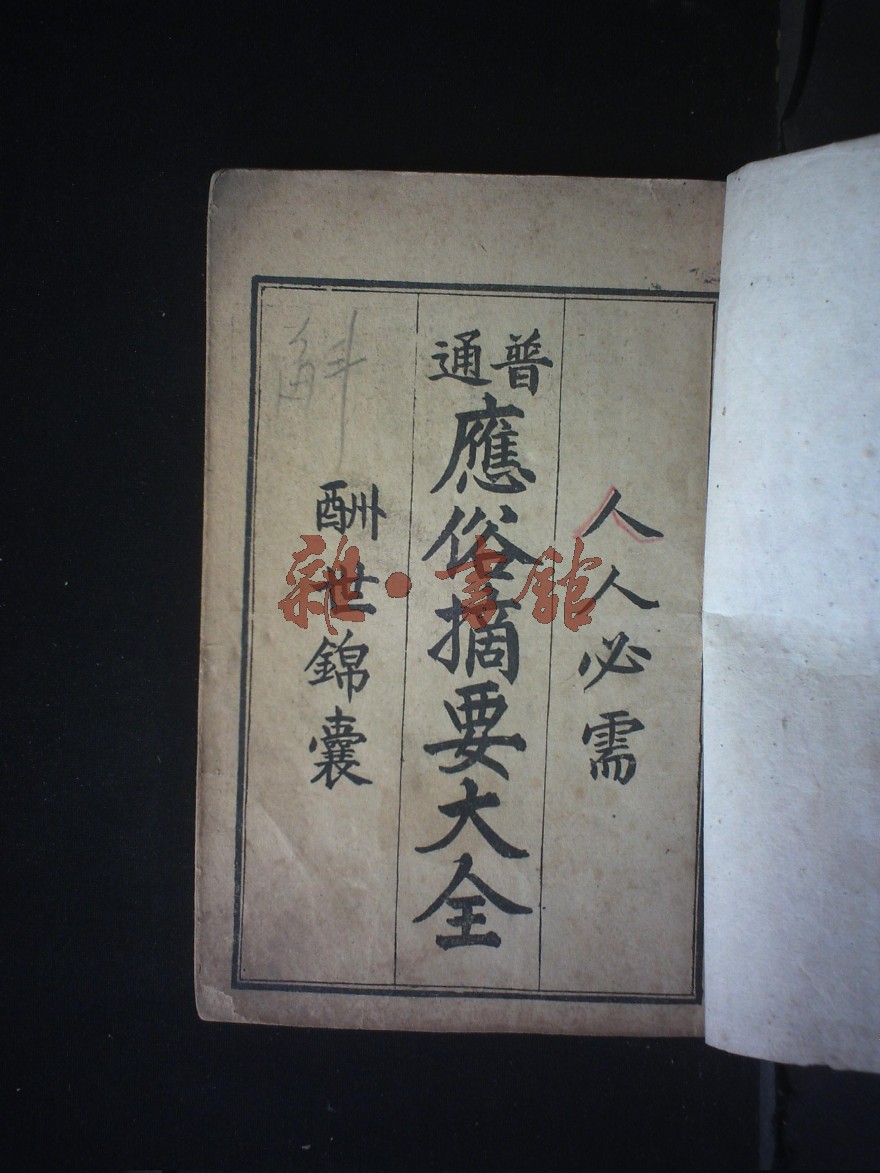 人人必需
普通
應俗摘要大全
酬世錦囊
雜·書館